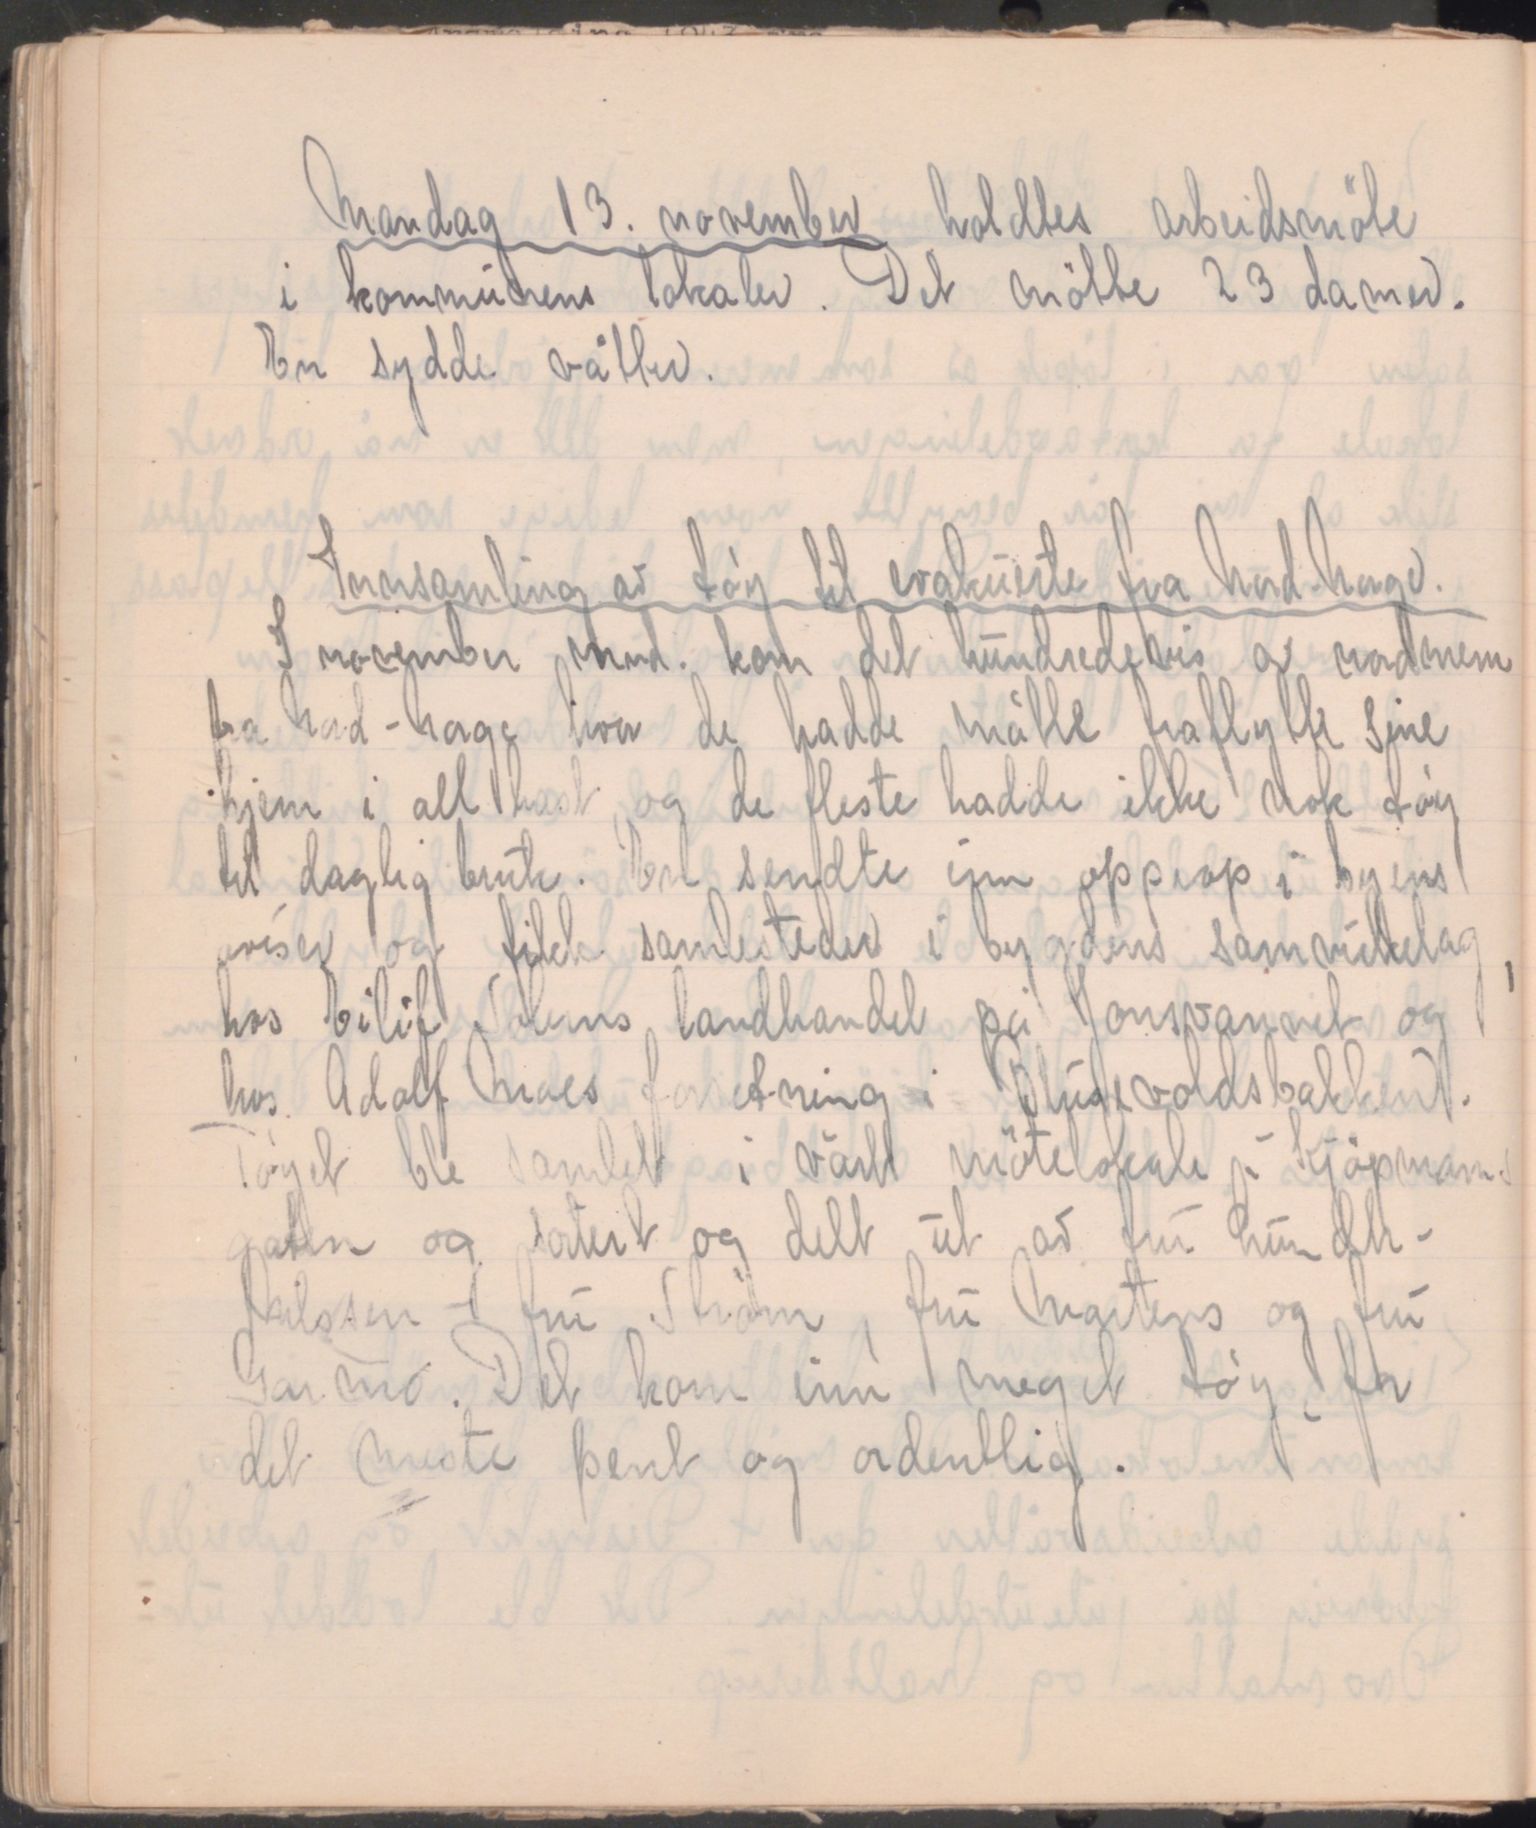 Mandag 13. november holdtes arbeidsmöte
i kommunens lokaler. Det mötte 23 damer.
En sydde våtter.
Innsamling av tøy til evakuerte fra Nord-Norge.
I november mnd. kom det hundredevis av nordmenn
fra Nord-Norge hvor de hadde måtte fraflytte sine
hjem i all hast, og de fleste hadde ikke nok tøy
til daglig bruk. En sendte inn opprop i byens
aviser og fikk samlesteder i bygdens samvirkelag,
hos Eilif Solems landhandel på Jonsvannet og
hos Adolf Moes forretning i
Tøyet ble samlet i vårt mötelokale i Kjöpmanns
gaten og sortert og delt ut av fru
Nilssen fru Ström, fru Martens og fru
Garmo. Det kom inn meget tøy, for
det meste pent og ordentlig.